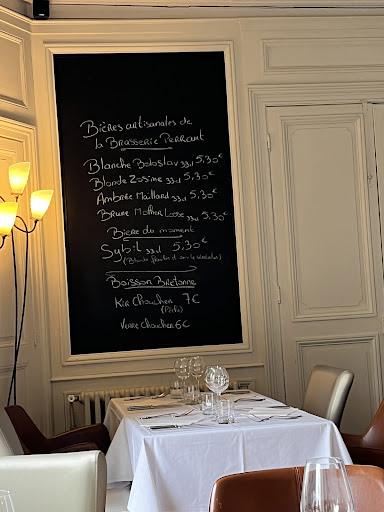 Bières artisanales de
la Brasserie Perrant
Blanche Boloslav 33cl 5,30€
Blonde Zosime 33cl 5,30€
Ambrée Maillard 33cl 5,30€
Brune Mother Loose 33cl 5,30€
Bière du moment
Sybil 33cl 5,30€
(Blonde
Boisson Bretonne
Kir Chouchen 7€
Verre Chouchen 6€